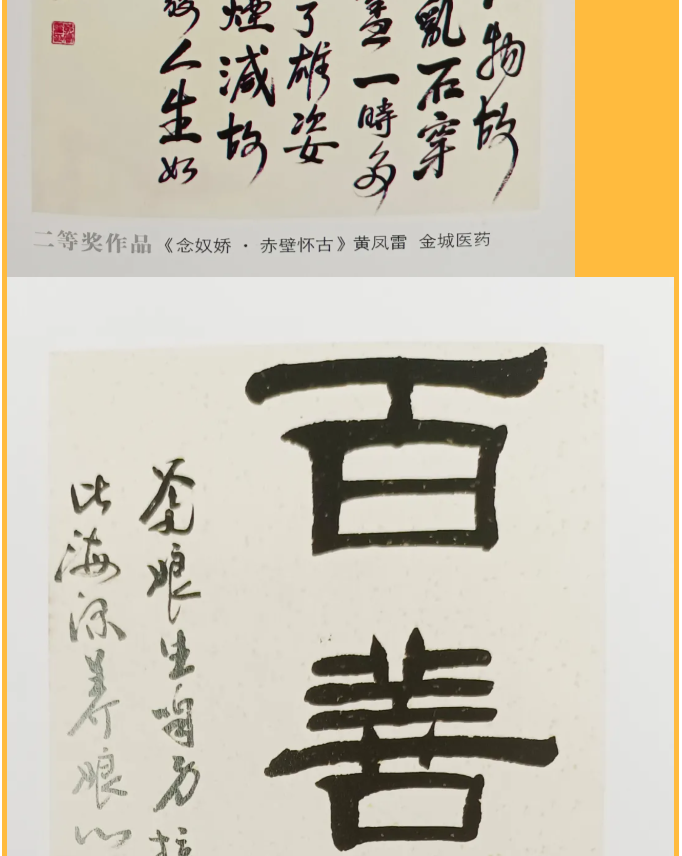 物故
亂石穿
一時多
了雄姿
煙滅故
人生如
二等奖作品《念奴娇 · 赤壁怀古》黄凤雷 金城医药
百善
爹娘生咱
比海深养